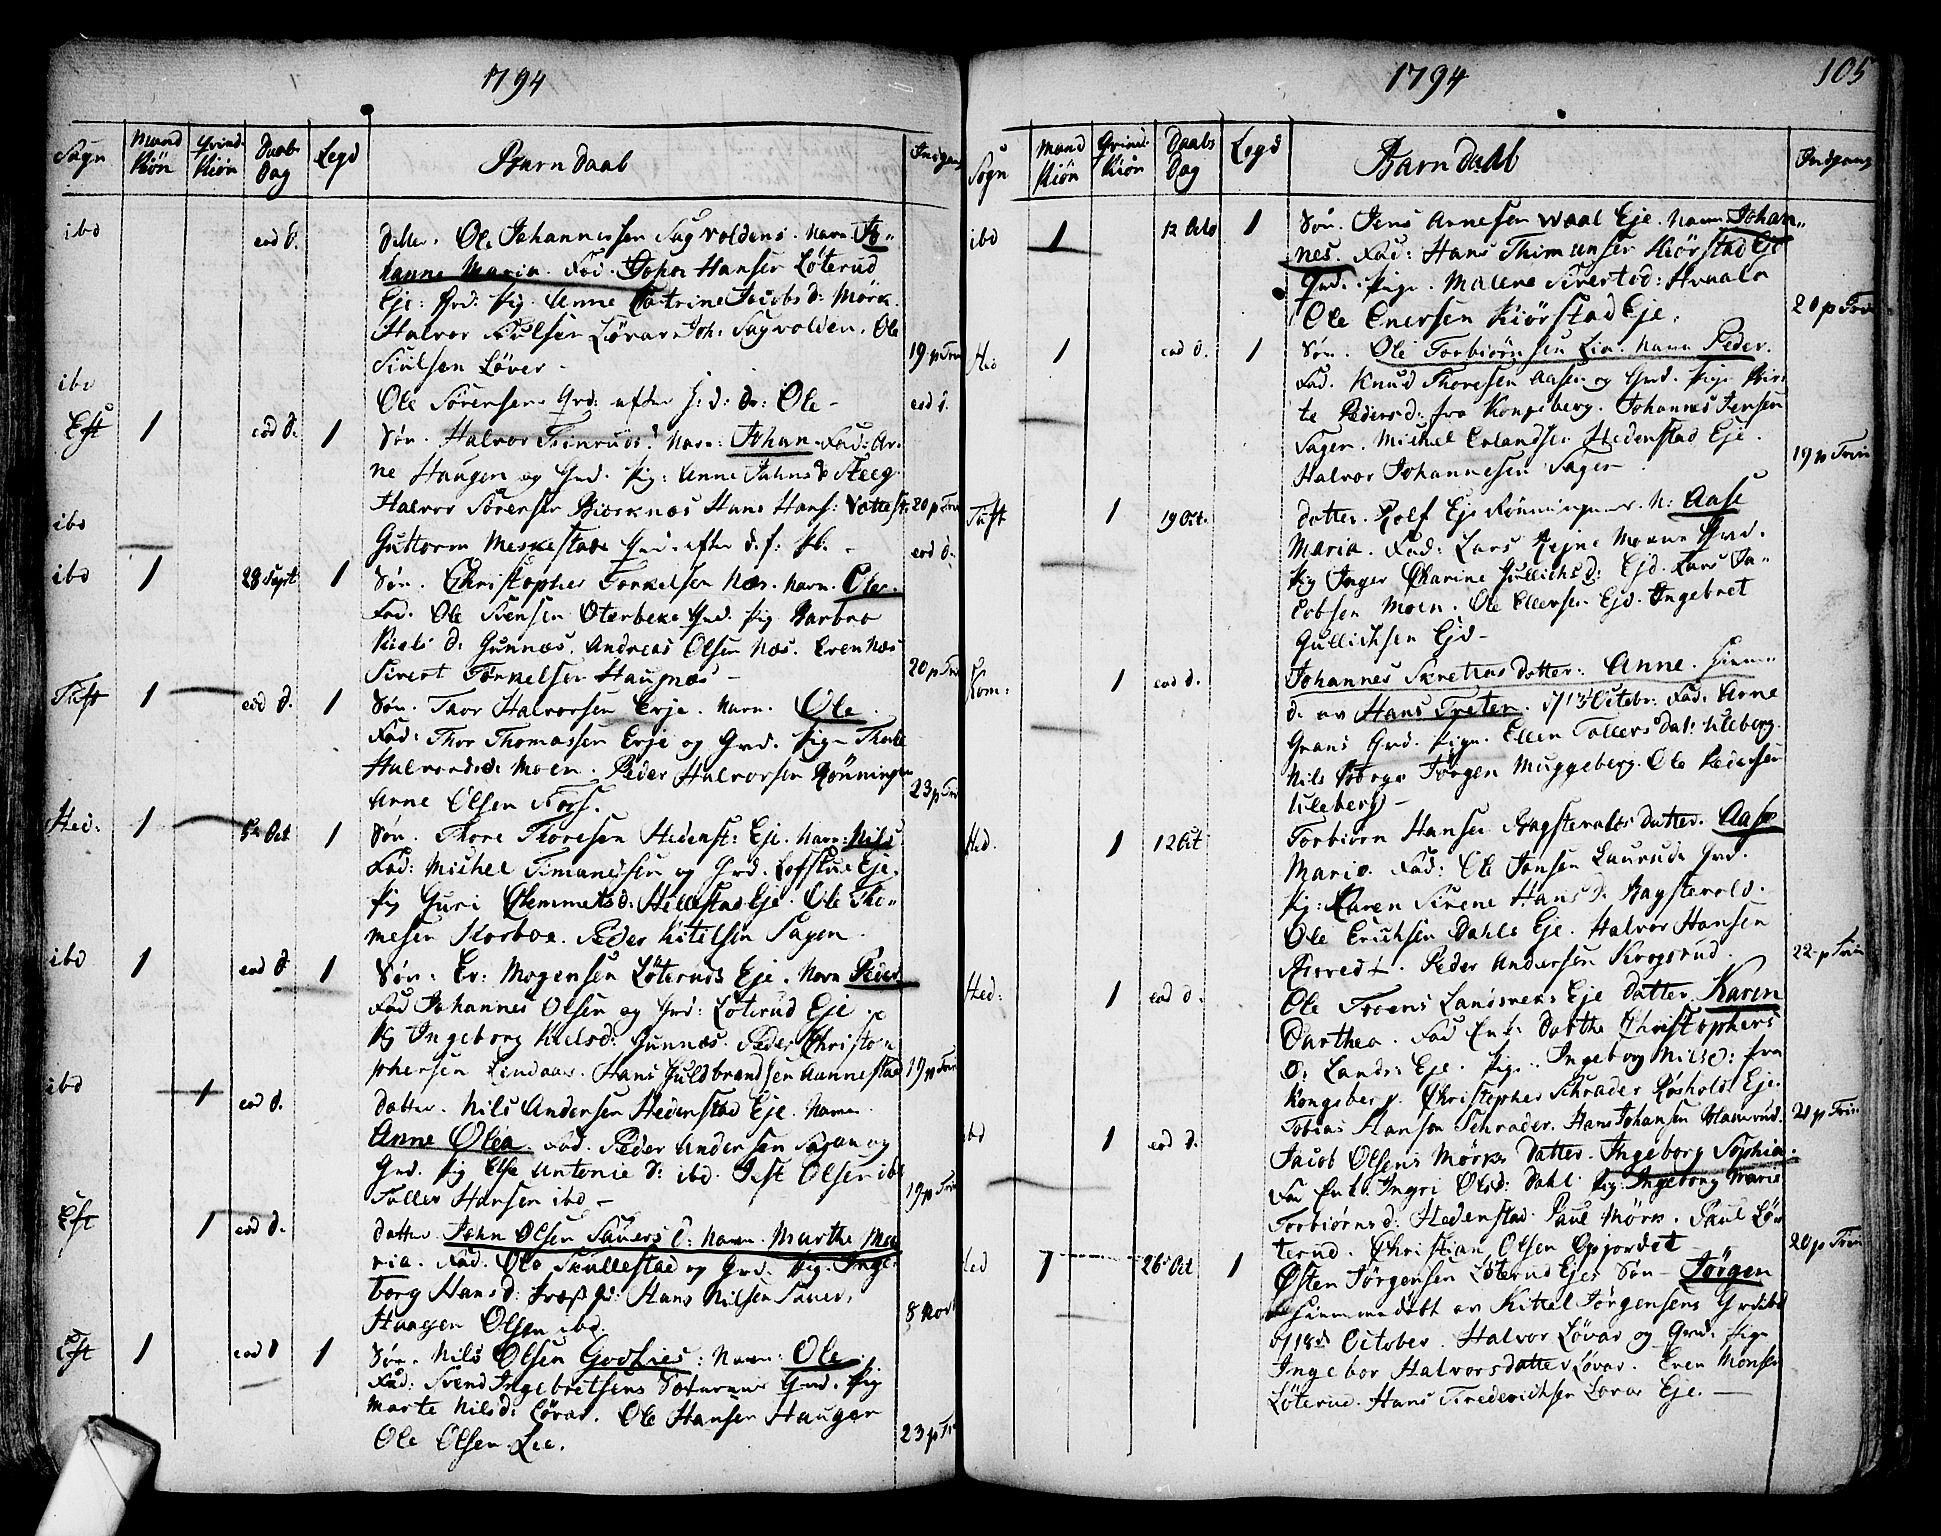 1794
Sogn Mand Kiön Qvind Kiön Daabs Dag Legd Barn Daab Indgang
ibd eod d. Datter. Ole Johannessen Sagvoldens. Navn. Jo-
hanne Maria. Fad. John Hansen Löterud
Eje: Grd: pig. Anne Catrine Jacobs d: Mörk.
Halvor Löver Joh: Sagvolden. Ole
Löver - 19 p Trin
ibd Ole Sörensens Grd: efter Ole - eod d.
Eft 1 eod d. 1 Sön. Halvor Navn: Johan. Fad: Ar-
ne Haugen og Grd. pig: Anne
Halvor Sörensen Biörknæs Hans Hans: 20 p Trin
ibd Guttorm Meskestad Grd. efter d. f: - eod d.
ibd 1 28 Sept 1 Sön. Christopher Torkelsen Næs. Navn. Oles.
Fad. Ole Svensen Oterbeke Grd. pig Barbro
Kiels d: Gunnæs. Andreas Olsen Næs. Even Næs
Sivert Torkelsen Haugnæs - 20 p Trin
Tuft 1 eod d. 1 Sön. Thor Halvorsen Erje. Navn. Ole.
Fad: Thor Thomassen Erje og Grd. pig
Halvorsd: Moen. Peder Halvorsen Rönningen
Arne Olsen Fors. 23 p Trin
Hed: 1 5 Oct 1 Sön. Thore Thoresen Hedenst: Eje. Navn: Nils
Fad: Michel Timandsen og Grd. Lofstue Eje.
pig Guri Clemmetsd: Hellestad Eje. Ole Tho-
mesen Skorboe. Peder Kitelsen Sagen.
ibd 1 eod d 1 Sön. Er: Mogensen Löteruds Eje. Navn Peder
Fad Johannes Olsen og Grd: Löterud Eje
pig Ingeborg Kielsd: Gunnæs. Peder Christo-
phersen Lindaas. Hans Guldbrandsen Aannestad 19 p Trin
ibd 1 eod d. Datter. Nils Andersen Hedenstad Eje. Navn.
Anne Olea. Fad. Peder Andersen Sagen og
Grd. pig Else Antonie d: ibd. Jest Olsen ibd
Toller Hansen ibd - 19 p Trin
Eft 1 eod d. Datter John Olsen Sauers d: Navn. Marthe Ma-
ria. Fad. Ole Skullestad og Grd. pig. Inge-
borg Hans d: Hans Nilsen Sauer,
Haagen Olsen ibd. 8 Nov
Eft 1 eod d 1 Sön. Nils Olsen Godlies: Navn: Ole.
Fad: Svend Ingebretsens Grd. pig
Marte Nilsd: Löver. Ole Hansen Haugen
Ole Olsen Lee. 23 p Tr
1794 105
Sogn Mand Kiön Qvind Kiön Daabs Dag Legd Barn Daab Indgang
ibd 1 12 Octo 1 Sön. Jens Arnesen Waal Eje. Navn. Johan-
nes. Fad: Hans Thimansen Kiörstad Eje
Grd. pige. Malene Sivertsd: Hvaala
Ole Enersen Kiörstad Eje. 20 p Trin
Hed 1 eod d. 1 Sön. Ole Torbiörnsen Lia. Navn Peder.
Fad. Knud Thoresen Aasen og Grd. pige Bir-
te Pedersd: fra Kongsberg. Johannes Jensen
Sagen. Michel Erlandsen Hedenstad Eje.
Halvor Johannesen Sagen 19 p Trin
Tuft 1 19 Oct. Datter. Rolf Eje Rönningen. N: Aase
Maria. Fad: Lars Moene Grd.
pig Inger Charine Gullichsd: Ejd. Lars Ja-
cobsen Moen. Ole Ellensen Ejd. Ingebret
Gullichsen Ejd -
Kom: 1 eod d. Johannes Datter. Anne. Hiem-
d. av Hans Treten. 17 13 Octobr. Fad: Arne
Grans Grd. pige. Ellen Tollers Dat: Uleberg.
Nils Borge Jörgen Muggeberg. Ole Pedersen
Uleberg -
Hed. 1 12 Oct Torbiörn Hansen Ragstevolds Datter. Aase
Maria. Fad: Ole Jonsen Laurud. Grd.
pig: Karen Sirene Hans d. Ragstevold.
Ole Erichsen Dahle Eje. Halvor Hansen
Peder Andersen Krogsrud. 22 p Trin
Hed: 1 eod d. Ole Troens Landsverk Eje Datter Karen
Darthea. Fad Enk. Dorthe Christophers
d: Lands: Eje. pige. Ingeborg Nilsd: fra
Kongsberg. Christopher Schrader Rosholdt Eje.
Tobias Hanson Schrader. Hans Johansen Hamrud. 20 p Trin
ibd 1 eod d. Jacob Olsens Mörks Datter. Ingeborg Sophia.
Fad Enk. Ingri Olsd: Dahl. pig. Ingeborg Marie
Torbiörnsd: Hedenstad. Paul Mörk. Paul Lö-
terud. Christian Olsen Opjordet 20 p Trin
Hed 1 26 Oct 1 Østen Jörgensen Löterud Ejes Sön - Jörgen
Hiemmedöbt av Kittel Jörgensens Grd ibd
d 18de October. Halvor Lövar og Grd. pige
Ingebor Halvorsdatter Lövar. Even Monsen
Löterud. Hans Frederichsen Lovar Eje. -